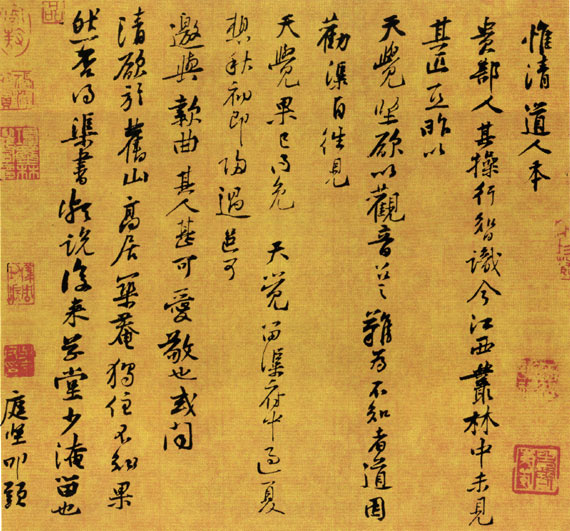 惟清道人本
貴部人其操行智識今江西叢林中未見
其匹亙昨以
天覺堅欲以觀音召之難為不知者道因
勸渠自往見
天覺果已得免 天覺留渠府中過夏
想秋初即歸過邑可
邀與款曲其人甚可愛敬也或聞
清欲於舊山高居築菴獨住不知果
然否得渠書頗說後來草堂少淹留也
庭堅叩頭